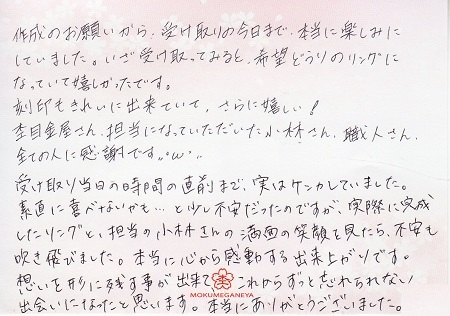 作成のお願いから、受け取りの今日まで、本当に楽しみに
していました。いざ受け取ってみると、希望どうりのリングに
なっていて嬉しかったです。
刻印もきれいに出来ていて、さらに嬉しい！
杢目金屋さん、担当になっていただいた小林さん、職人さん、
全ての人に感謝です。・ω・。
受け取り当日の時間の直前まで、実はケンカしていました。
素直に喜べないかも…と少し不安だったのですが、実際に完成
したリングと、担当の小林さんの満面の笑顔を見たら、不安も
吹き飛びました。本当に心から感動する出来上がりです。
想いを形に残す事が出来て、これからずっと忘れられない
出会いになったと思います。本当にありがとうございました。
MOKUMEGANEYA